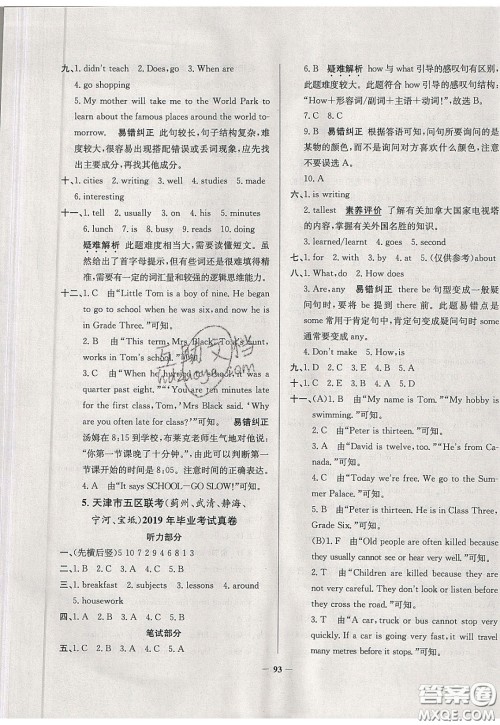 九、1. didn't teach 2. Does, go 3. When are
4. go shopping
5. My mother will take me to the World Park to
learn about the famous places around the world to-
morrow. 易错纠正 此句较长,句子结构复杂,
难度较大,很容易出现搭配错误或丢词现象,应先
找出主要成分,再找其他成分。
十、1. cities 2. writing 3. well 4. studies 5. made
6. interesting
十一、1. tell 2. usually 3. on 4. his 5. from
6. lunch 7. is 8. busy 9. about 10. my
疑难解析 此题难度相当大,需要读懂短文。虽
然给出了首字母提示,但填入的词必须读得很精
准,需要有一定的词汇量和较强的逻辑思维能力。
十二、1. C 由“Little Tom is a boy of nine. He began
to go to school when he was six, and now he is
in Grade Three.”可知。
2. B 由“This term, Mrs. Black, Tom's aunt,
works in Tom's school.”可知。
3. C 由“When he got to school, it was a
quarter past eight.”“‘You are ten minutes late
for the first class, Tom,’ Mrs Black said. ‘Why
are you often late for class?’” 易错纠正
汤姆在 8:15 到学校,布莱克老师生气地对他说:
“你第一节课晚了十分钟”,由此可以判断第一
节课开始的时间是 8:05。注意时间的正确表达。
4. A 由“It says SCHOOL—GO SLOW!”可知。
5. 天津市五区联考(蓟州、武清、静海、
宁河、宝坻)2019 年毕业考试真卷
听力部分
一、(先横后竖)5 10 7 2 9 4 6 8 1 3
二、1. C 2. B 3. A 4. C 5. B
三、1. breakfast 2. subjects 3. lessons 4. around
5. housework
四、1. A 2. B 3. A 4. A 5. B
笔试部分
五、1. C 2. B 3. A 4. C 5. A
6. B 疑难解析 how 与 what 引导的感叹句有区别,
此题难度较大。此题符合 how 引导的感叹句的结构:
“How+形容词/副词+主语+动词!”,故选 B。
7. C 8. C
9. B 易错纠正 根据答语可知,问句所要询问的是
某物的颜色,而不是询问对方喜欢什么颜色,要注意
区分。
10. A
六、1. is writing
2. tallest 素养评价 了解有关加拿大国家电视塔
的内容,掌握有关外国名胜的知识。
3. learned/learnt 4. closed 5. first
七、1. for 2. with 3. by 4. at 5. (仅供参考)about
八、1. What, do 2. How does
3. Are, any 易错纠正 there be 句型变成一般疑
问句时,要将 be 提到 there 前。此题易错点是
some 常用于肯定句中,肯定句变成疑问句时,要将
some 变成 any。
4. Don't make 5. No, can't
九、1. D 2. E 3. A 4. B 5. C
十、1. C 2. C 3. A 4. A 5. B
十一、1. C 由“My name is Tom.”“My hobby is
swimming.”可知。
2. B 由“Peter is thirteen.”可知。
3. A 由“David is twelve, too.”“He's from
Canada.”可知。
4. C 由“Today we're free. We go swimming.
So Cool!”可知。
5. A 由“Peter is thirteen. He is in Class Three,
Grade Six.”可知。
十二、1. B 由“Children are often killed because they
are not very careful. They don't look or listen before
they cross the road.”可知。
2. A 由“Children and old people are often killed
because they are not very careful.”可知。
3. C 由“Cars, taxis, buses and trucks often
travel very quickly. If a car is going very fast, it
can't stop quickly.”可知。
93